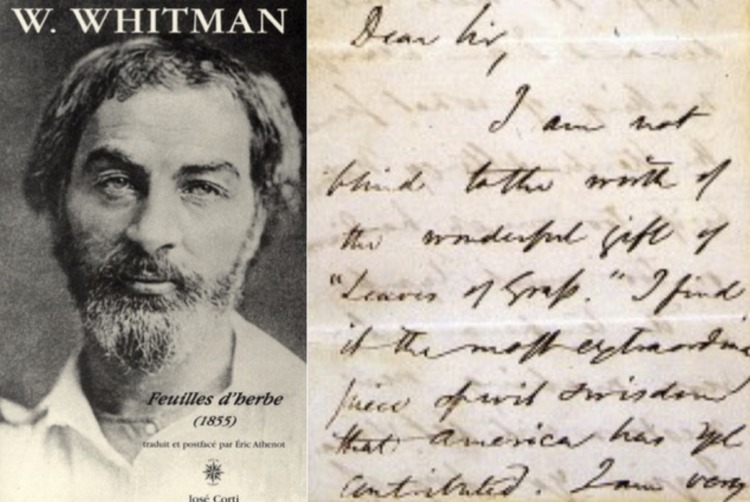 W. WHITMAN
Feuilles d'herbe
(1855)
traduit et postfacé par Éric Athenot
José Corti
Dear Sir,
I am not
blind to the worth of
the wonderful gift of
"Leaves of Grass." I find
it the most extraordina
piece of wit & wisdom
that America has yet
contributed. I am very